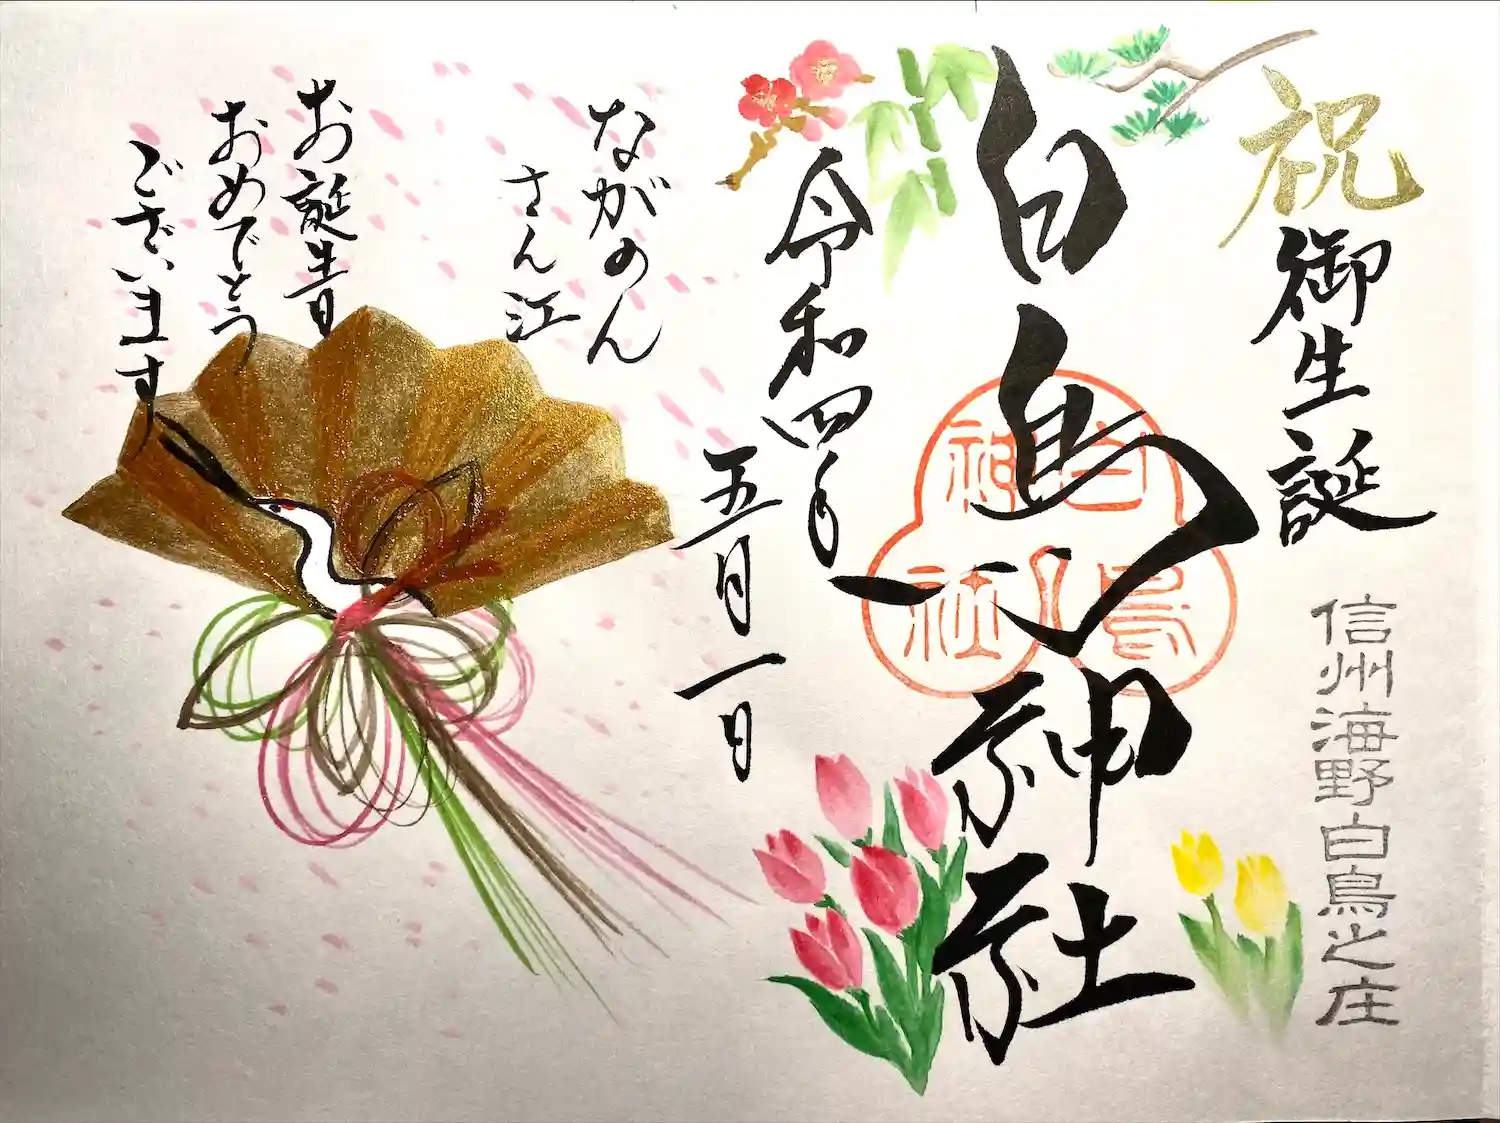 祝
御生誕
信州海野白鳥之庄
白鳥神社
白鳥神社
令和四年
五月一日
ながのん
さん江
お誕生日
おめでとう
ございます